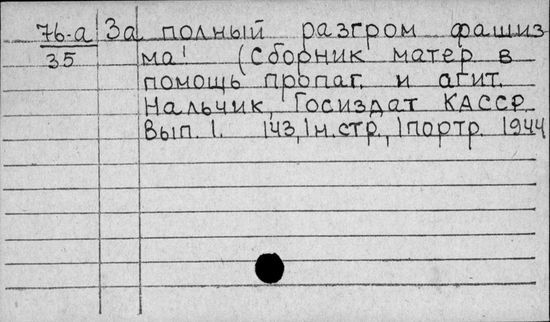 76-а За полный разгром фашиз
35 ма! (Сборник матер. в
помощь пропаг. и агит.
Нальчик, Госиздат КАССР
Вып. 1. 143, 1 н. стр., 1 портр. 1944